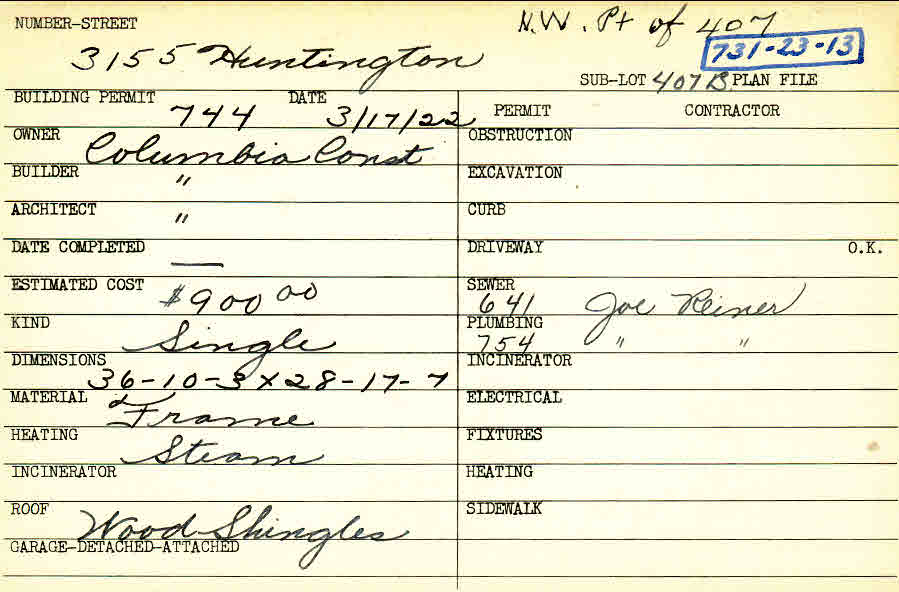 NUMBER-STREET N.W. Pt of 407
3155 Huntington 731-23-13
SUB-LOT 407B PLAN FILE
BUILDING PERMIT 744 DATE 3/17/22
OWNER Columbia Const
BUILDER "
ARCHITECT "
DATE COMPLETED —
ESTIMATED COST $900 00
KIND Single
DIMENSIONS 36-10-3 X 28-17-7
MATERIAL Frame
HEATING Steam
INCINERATOR
ROOF Wood Shingles
GARAGE-DETACHED-ATTACHED
PERMIT CONTRACTOR
OBSTRUCTION
EXCAVATION
CURB
DRIVEWAY O.K.
SEWER
641 Joe Reiner
PLUMBING
754 " "
INCINERATOR
ELECTRICAL
FIXTURES
HEATING
SIDEWALK